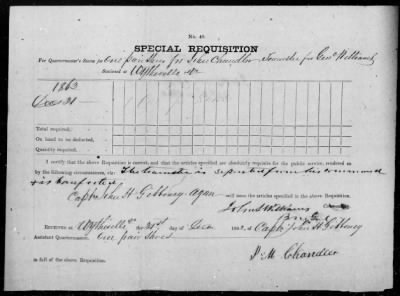 No. 40.
SPECIAL REQUISITION
For Quartermaster's Stores for One pair Shoes for John Chandler Teamster for Genl Williams
Stationed at Wytheville Va
1863
Dec 31
Total required,
On hand to be deducted,
Quantity required.
I certify that the above Requisition is correct; and that the articles specified are absolutely requisite for the public service, rendered so
by the following circumstances, viz: The teamster is separated from his command
& is barefooted
Capt. John H Gibboney will issue the articles specified in the above Requisition.
John S Williams
Brig Genl
Received at Wytheville Va the 31st day of Dec 1863 of Capt John H Gibboney
Assistant Quartermaster. One pair Shoes
J. M. Chandler
in full of the above Requisition.